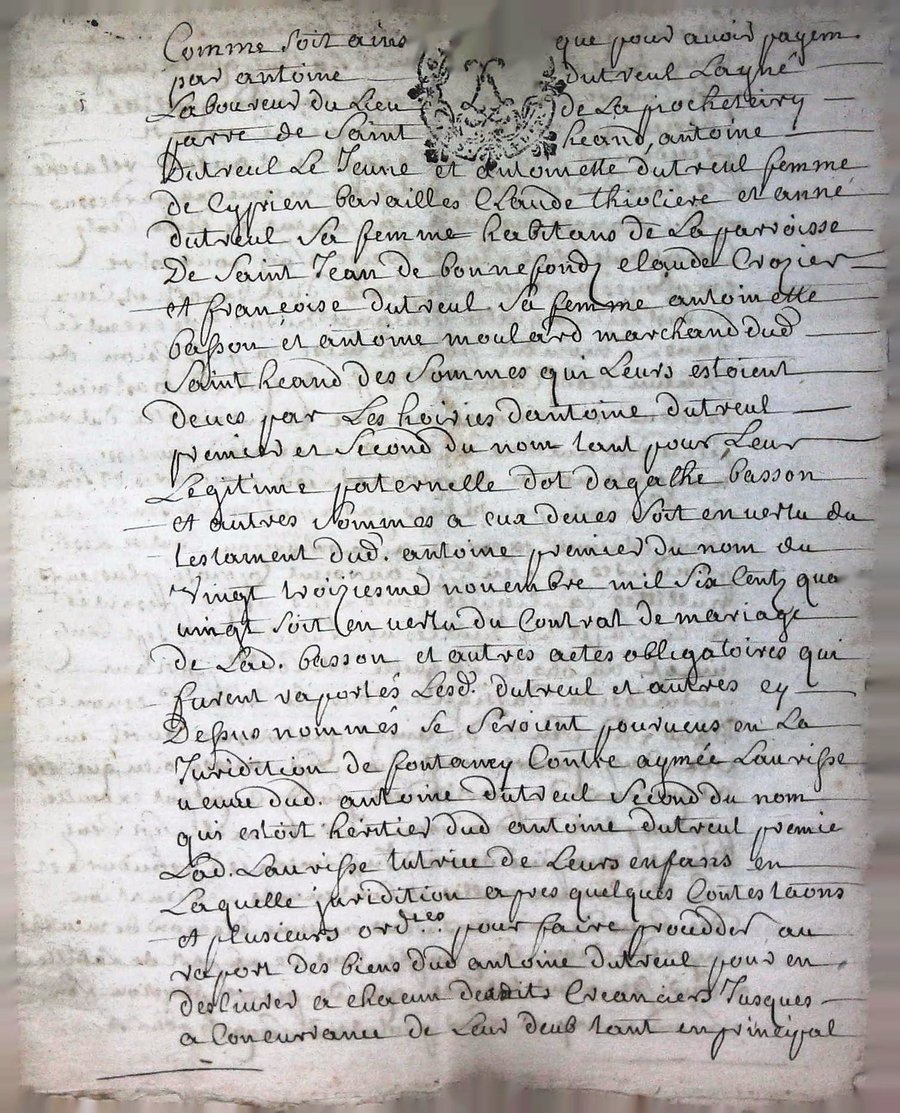 Comme soit ains que pour avoir payem
par antoine dutreul Layné
Laboureur du Lieu de La piochetiery
parre de Saint heand, antoine
Dutreul Le Jeune et antoinette dutreul femme
de Cyprien bavailles Claude thioliere et anné
dutreul sa femme habitans de La parroisse
De Saint Jean de bonnefondz claude Crozier
et françoise dutreul sa femme antoinette
basson et antoine moulard marchand dud
Saint heand des Sommes qui Leurs estoient
deues par Les hoiries dantoine dutreul
premier et Second du nom tant pour Leur
Legitime paternelle dot dagathe basson
et autres Sommes a eux deues Soit en vertu du
testament dud. antoine premier du nom du
vingt troiziesme novembre mil six Centz qua
vingt soit en vertu du Contrat de mariage
de Lad. basson et autres actes obligatoires qui
furent raportés Lesd. dutreul et autres cy
Dessus nommés se seroient pourveus en La
Juridition de fontaney Contre aymée Laurisse
veuve dud. antoine dutreul Second du nom
qui estoit héritier dud antoine dutreul premie
Lad. Laurisse tutrice de Leurs enfans en
Laquelle juridition apres quelques Contestaons
et plusieurs ord.ces pour faire procedder au
raport des biens dud antoine dutreul pour en
deslivrer a chacun desdits Creanciers Jusques
a Concurrance de Leur deub tant en principal